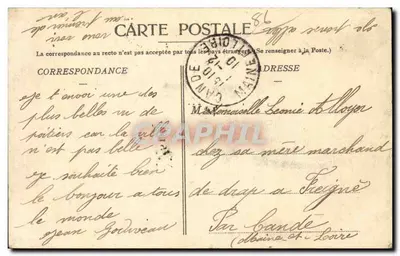 CARTE POSTALE
La correspondance au recto n'est pas acceptée par tous les pays étrangers. (Se renseigner à la Poste.)
CORRESPONDANCE
ADRESSE
CANDÉ
MAINE-ET-LOIRE
je t'envoi une des
plus belles vu de
poitiers car la ville
n'est pas belle
je souhaite bien
le bonjour a tous
le monde
Jean
Mademoiselle Leonie
chez sa mère marchand
de drap a Freigné
Par Candé
Maine et Loire
CPAPHIL